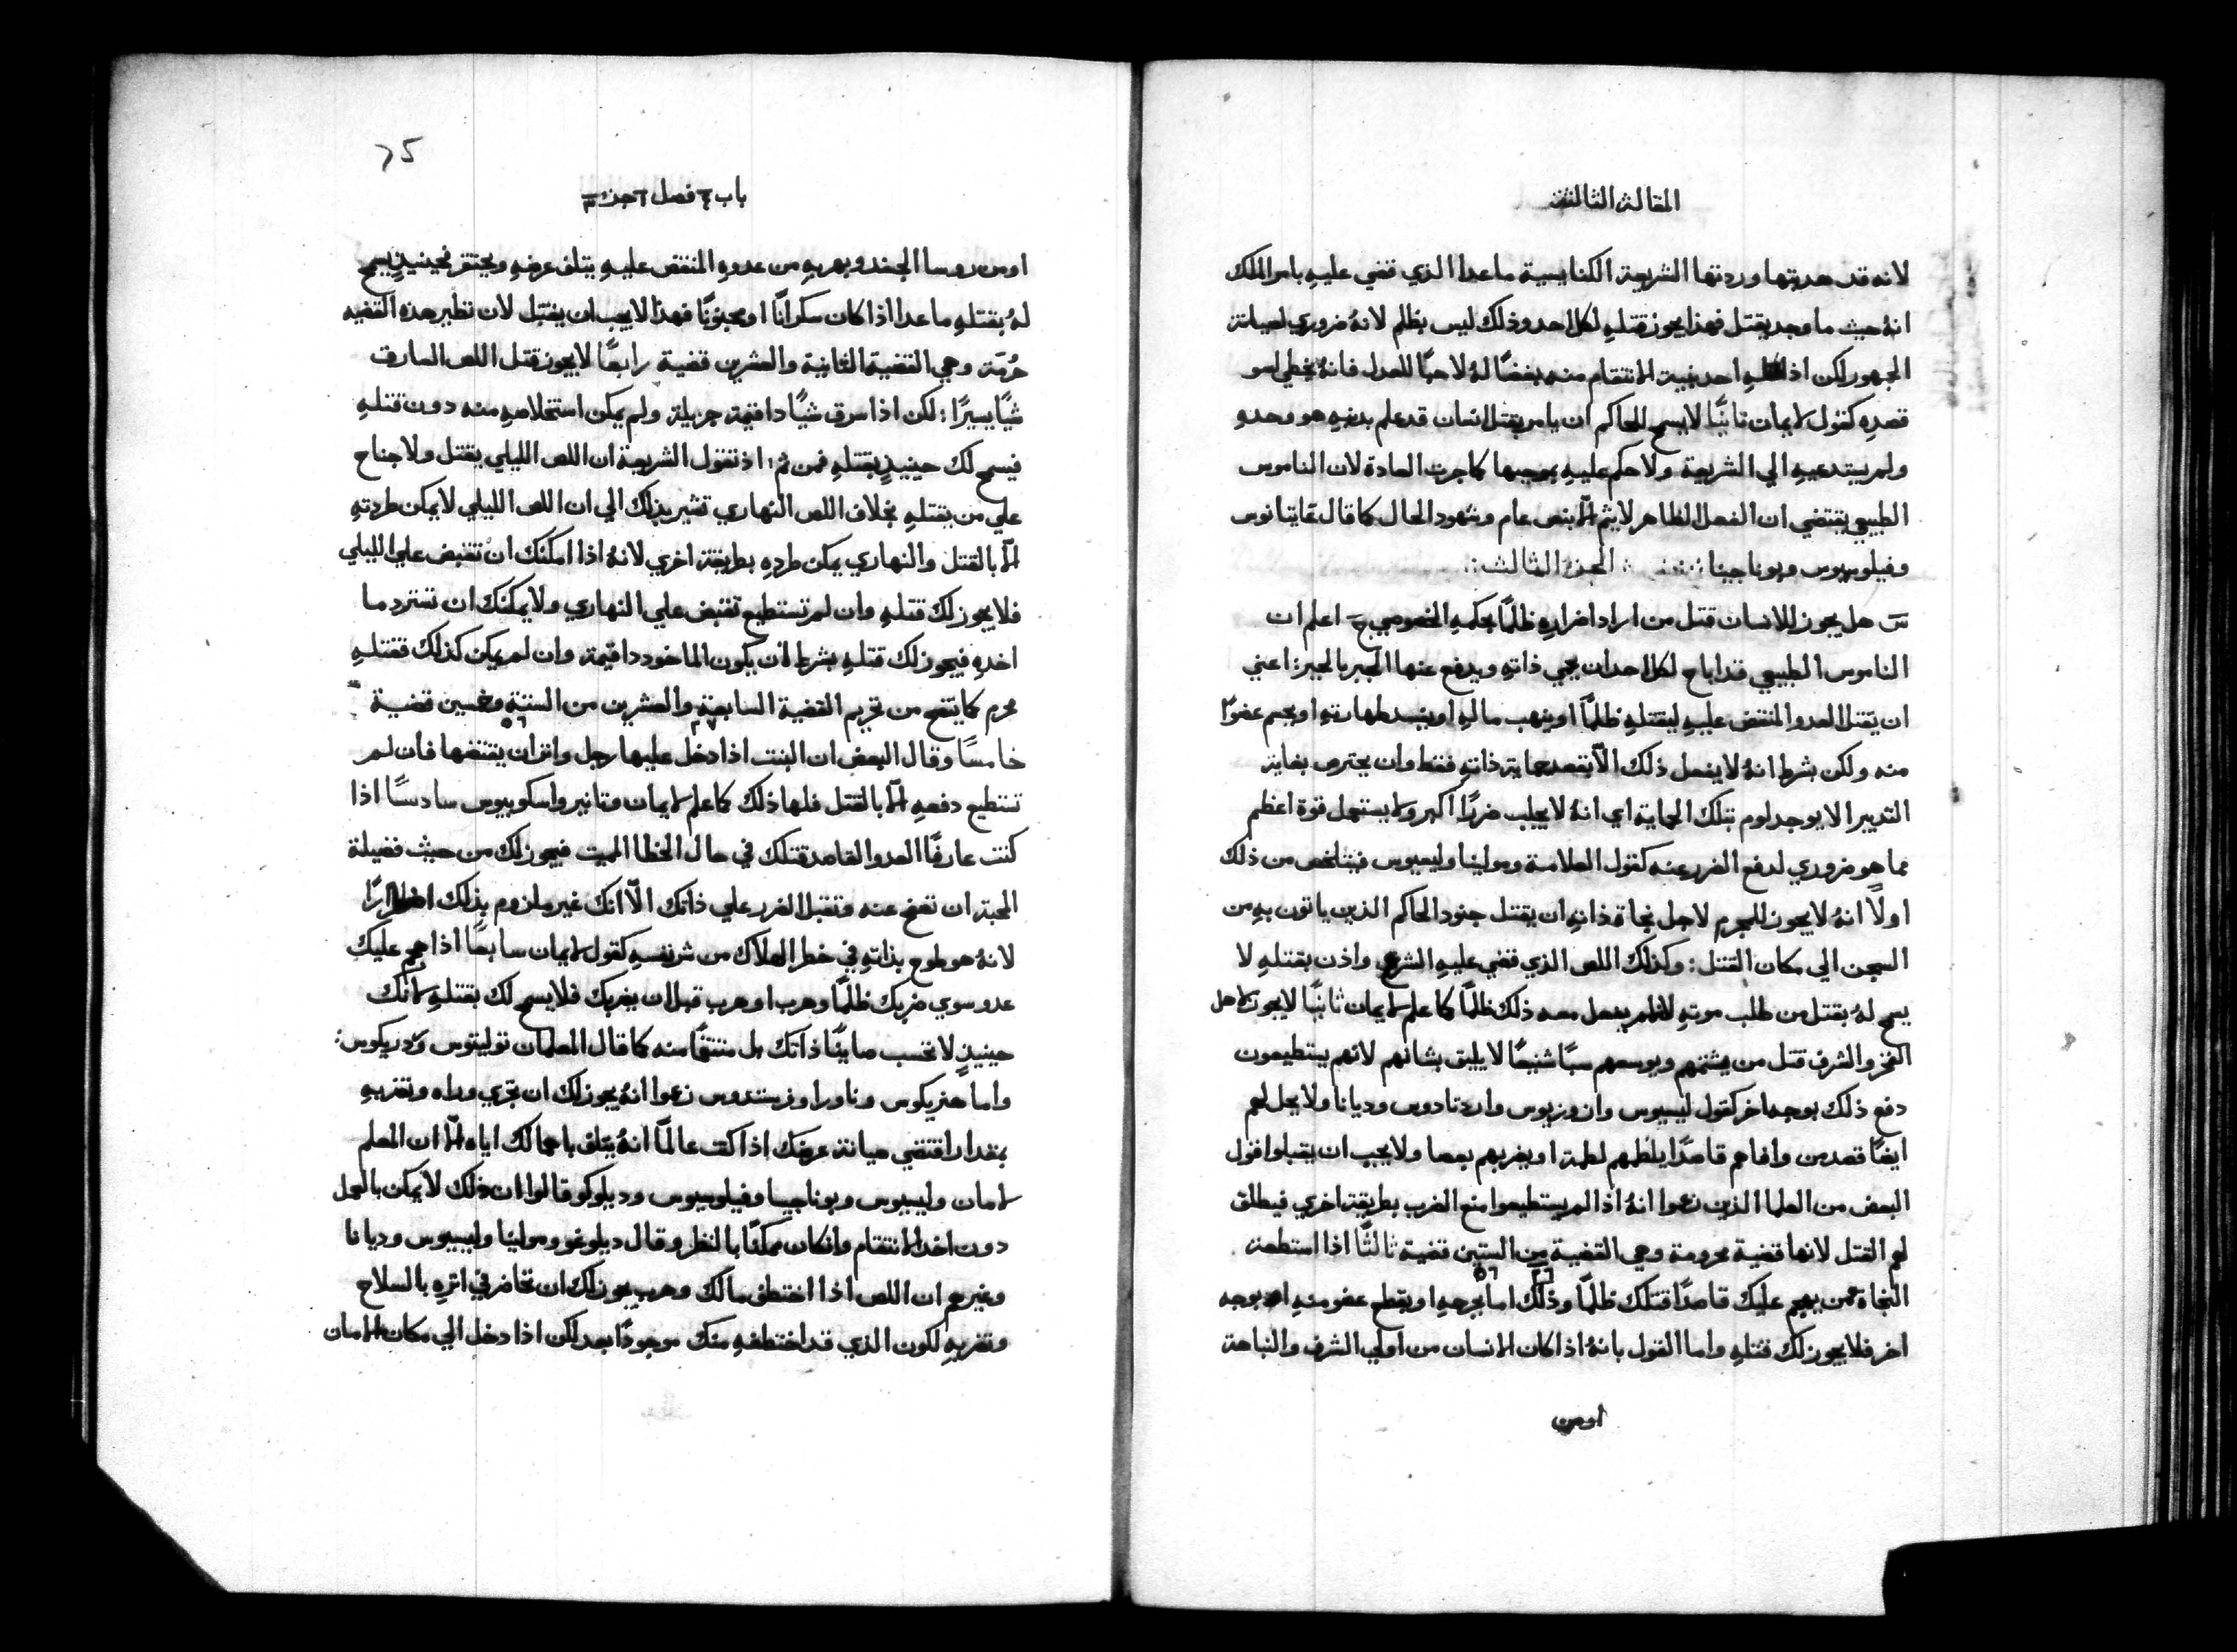 المقالة الثالثة
لانه قد هدمتها وردتها الشريعة الكنايسية ماعدا الذي قضي عليهِ بامر الملك
انهُ حيث ما وجد يقتل فهذا يجوز قتلهِ لكل احد وذلك ليس بظلم لانهُ ضروري لصيانة
الجمهور لكن اذا قتلهِ احد بنية الانتقام منه بغضًا لهُ لا حبًا للعدل فانهُ يخطي لسو
قصدهِ كقول لايمان ثانيًا لا يسمح للحاكم ان يامر بقتل انسان قد علم بذنبهِ هو وحدو
ولم يستدعيهِ الي الشريعة ولا حكم عليهِ بموجبها كما جرت العادة لان الناموس
الطبيعي يقتضي ان الفعل الظاهر لا يتم الّا بنص عام وشهود الحال كما قال غايتانوس
وفيلوسيوس وبوناجينا الجزء الثالث
س هل يجوز للانسان قتل من اراد اضرارهِ ظلمًا بحكمهِ الخصوصي ج اعلم ان
الناموس الطبيعي قد اباح لكل احد ان يحمي ذاتهِ ويدفع عنها الجبر بالجبر: اعني
ان يقتل العدو المنقض عليهِ ليقتلهِ ظلمًا او ينهب مالهِ او يفسد طهارتهِ او يجسم عضوًا
منه ولكن بشرط انهُ لا يفعل ذلك الّا بقصد حماية ذاتهِ فقط وان يحترص بغاية
التدبير الا يوجد لوم بتلك الحماية اي انهُ لا يجلب ضررًا اكبر ولا يستعمل قوة اعظم
مما هو ضروري لدفع الضرر عنه كقول العلامة ومولينا وليسيوس فيتلخص من ذلك
اولًا انهُ لا يجوز للمجرم لاجل نجاة ذاتهِ ان يقتل جنود الحاكم الذين ياتون بهِ من
السجن الي مكان القتل: وكذلك اللص الذي قضي عليهِ الشرع واذن بقتلهِ لا
يسمح لهُ بقتل من طلب موتهِ لانهُ لم يفعل معه ذلك ظلمًا كما علم لايمان ثانيًا لا يجوز لاهل
الفخر والشرف قتل من يشتمهم ويوسعهم سبًا شنيعًا لا يليق بشانهم لانهم يستطيعون
دفع ذلك بوجه اخر كقول ليسيوس وازوريوس وارتادوس وديانا ولا يحل لهم
ايضًا قصد من وافاهم قاصدًا يلطمهم لطمة او يضربهم بعصا ولا يجب ان يقبلوا قول
البعض من العلما الذين زعموا انهُ اذا لم يستطيعوا منع الضرب بطريقة اخري فيطلق
لهم القتل لانها قضية محرومة وهي القضية من الستين قضية ثالثًا اذا استطعت
النجاة ممن يهجم عليك قاصدًا قتلك ظلمًا وذلك اما بجرحهِ او بقطع عضو منهِ او بوجه
اخر فلا يجوز لك قتلهِ واما القول بانهُ اذا كان الانسان من اولي الشرف والنباهة
اومن
٢٥
باب فصل جزء
او من روسا الجند وبهربهِ من عدوهِ المنقض عليهِ يتلف عرضهِ ويحتقر فحينيذٍ يسمح
لهُ بقتلهِ ماعدا اذا كان سكرانًا او مجنونًا فهذا لا يجب ان يقتل لان نظير هذه القضيه
حُرّمَة وهي القضية الثانية والعشرين قضية رابعًا لا يجوز قتل اللص السارق
شيًا يسيرًا: لكن اذا سرق شيًا ذا قيمة جزيلة ولم يمكن استخلاصهِ منه دون قتلهِ
فيسمح لك حينيذٍ بقتلهِ فمن ثم: اذ تقول الشريعة ان اللص الليلي يقتل ولا جناح
علي من يقتلهِ بخلاف اللص النهاري تشير بذلك الي ان اللص الليلي لا يمكن طردتهِ
الّا بالقتل والنهاري يمكن طردهِ بطريقة اخري لانهُ اذا امكنك ان تقبض علي الليلي
فلا يجوز لك قتلهِ وان لم تستطيع تقبض علي النهاري ولا يمكنك ان تسترد ما
اخدهِ فيجوز لك قتلهِ بشرط ان يكون الماخود دا قيمة وان لم يكن كذلك فقتلهِ
محرم كما يتضح من تحريم القضية السابعة والعشرين من الستة وخمسين قضية
خامسًا وقال البعض ان البنت اذا دخل عليها رجل واتر ان يفتضها فان لم
تستطيع دفعهِ الّا بالقتل فلها ذلك كما علم لايمان وتانير واسكوبيوس سادسًا اذا
كنت عارفًا العدو القاصد قتلك في حال الخطا المميت فيجوز لك من حيث فضيلة
المحبة ان تصفح عنه وتقبل الضرر علي ذاتك الّا انك غير ملزوم بذلك اضطرارًا
لانهُ هو طوح بذاتهِ في خطر الهلاك من شر نفسهِ كقول لايمان سابعًا اذا هجم عليك
عدو سوي ضربك ظلمًا وهرب او هرب قبل ان يضربك فلا يسمح لك بقتلهِ لانك
حينيذٍ لا تحسب صاينًا ذاتك بل منتقمًا منه كما قال المعلمان توليتوس ودريكوس:
واما هنريكوس وناورا وفرنندوس زعموا انهُ يجوز لك ان تجري وراه وتضربهِ
بمقدار اقتضي صيانة عرضك اذا كنت عالمًا انهُ يتلف باهمالك اياه الّا ان المعلم
لامان وليسيوس وبوناجيسا وفيلوسيوس وديلوكو قالوا ان ذلك لا يمكن بالعمل
دون اخد الانتقام وان كان ممكنًا بالنظر وقال ديلوغو ومولينا وليسيوس وديانا
وغيرهم ان اللص اذا اختطف مالك وهرب يجوز لك ان تحاضر في اثرهِ بالسلاح
وتضربهِ لكون الذي قد اختطفهِ منك موجودًا بعد لكن اذا دخل الي مكان الامان